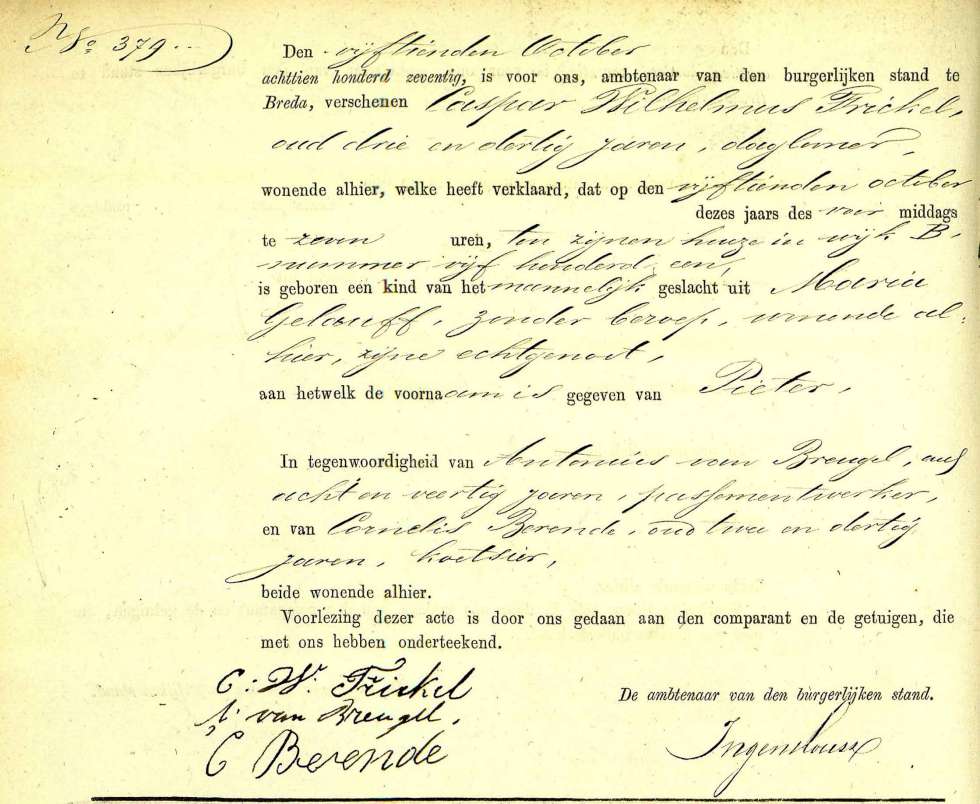 No 379.
Den vijftienden October
achttien honderd zeventig, is voor ons, ambtenaar van den burgerlijken stand te
Breda, verschenen Caspar Wilhelmus Frickel,
oud drie en dertig jaren, daglooner,
wonende alhier, welke heeft verklaard, dat op den vijftienden october
dezes jaars des voor middags
te zeven uren, ten zijnen huize in wijk B.
nummer vijf honderd een,
is geboren een kind van het mannelijk geslacht uit Maria
Gelauff, zonder beroep, wonende al-
hier, zijne echtgenoot,
aan hetwelk de voornaam is gegeven van Pieter.
In tegenwoordigheid van Antonius van Breugel, oud
acht en veertig jaren, passementwerker,
en van Cornelis Berende, oud twee en dertig
jaren, koetsier,
beide wonende alhier.
Voorlezing dezer acte is door ons gedaan aan den comparant en de getuigen, die
met ons hebben onderteekend.
C: W. Frickel
A. van Breugel.
C Berende
De ambtenaar van den burgerlijken stand.
Ingenhousz